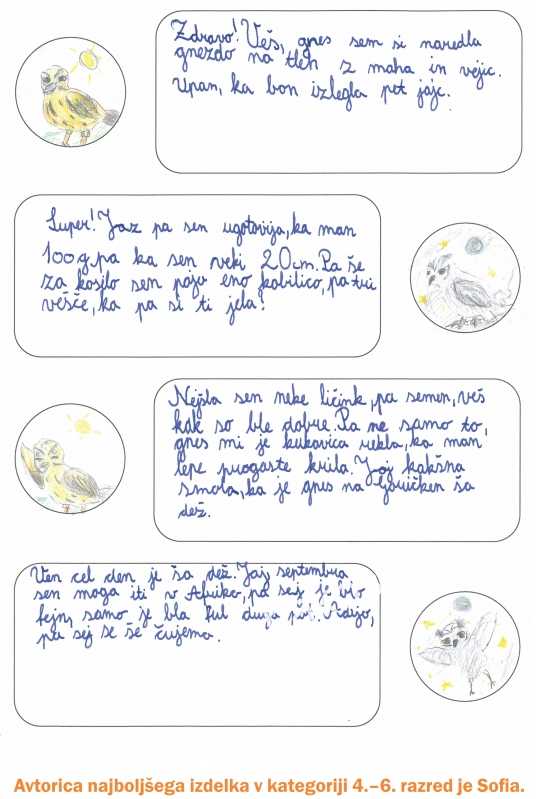 Zdravo! Veš, gnes sem si naredla
gnezdo na tleh z maha in vejic.
Upan, ka bon izlegla pet jajc.
Super! Jaz pa sen ugotovija, ka man
100 g, pa ka sen veki 20 cm. Pa še
za kosilo sen poja eno kobilico, pa tri
vešče, ka pa si ti jela?
Nejšla sen neke ličink, pa semen, veš
kak so ble dobre. Pa ne samo to,
gnes mi je kukavica rekla, ka man
lepe progaste krila. Joj kakšna
smola, ka je gnes na Goričken ša
dež.
Ven cel den je ša dež. Jaz septembra
sen moga iti v Afriko, pa sej je blo
fejn, samo je bla ful duga pot. Adijo,
pa sej se še čujema.
Avtorica najboljšega izdelka v kategoriji 4.–6. razred je Sofia.